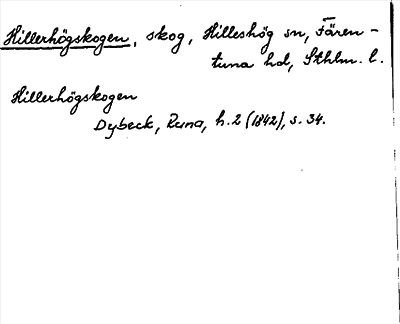 Hillerhögskogen, skog, Hilleshög sn, Fären-
tuna hd, Sthlm. l.
Hillerhögskogen
Dybeck, Runa, h. 2 (1842), s. 34.